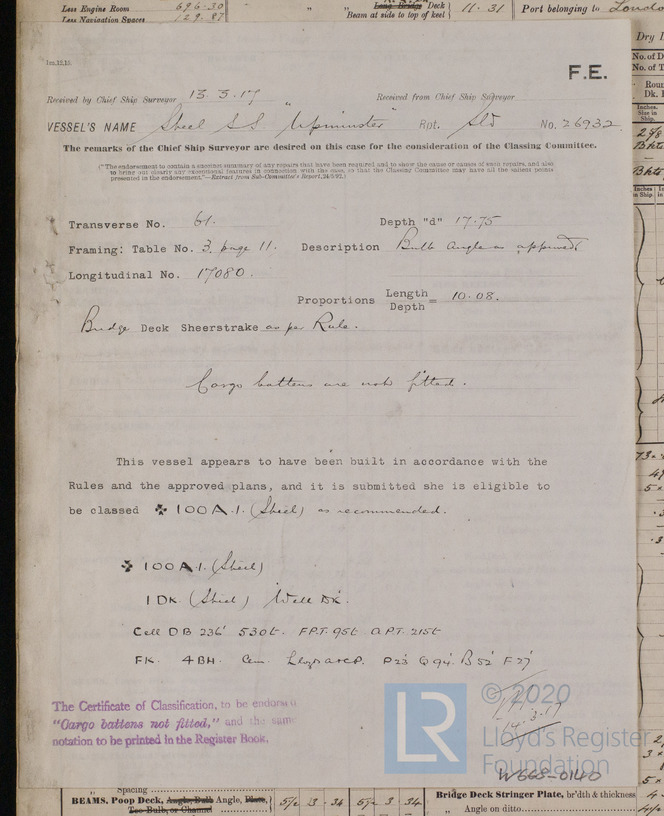 Less Engine Room 696-30
Less Navigation Spaces 129.87
" " Long Bridge Deck
Beam at side to top of keel 11.31
Port belonging to London
Dry D
No. of D
No. of T
F.E.
Received by Chief Ship Surveyor 13.3.17 Received from Chief Ship Surveyor
VESSEL'S NAME Steel SS "Upminster" Rpt. Sld No. 26932
The remarks of the Chief Ship Surveyor are desired on this case for the consideration of the Classing Committee.
("The endorsement to contain a succinct summary of any repairs that have been required and to show the cause of causes of such repairs, and also
to bring out clearly any exceptional features in connection with the case, so that the Classing Committee may have all the salient points
presented in the endorsement."—Extract from Sub-Committee's Report,
Transverse No. 61. Depth "d" 17.75
Framing: Table No. 3, page 11. Description Bulb Angle as approved
Longitudinal No. 17080.
Proportions Length
Depth = 10.08.
Bridge Deck Sheerstrake as per Rule.
Cargo battens are not fitted.
This vessel appears to have been built in accordance with the
Rules and the approved plans, and it is submitted she is eligible to
be classed ✠ 100A.1. (Steel) as recommended.
✠ 100A.1. (Steel)
1 DK. (Steel) Well Dk.
Cell DB 236' 530t. F.P.T. 95t A.P.T. 215t
FK. 4BH. Cem. Lloyds A&CP. P23' Q94' B52' F27'
The Certificate of Classification, to be endorsed
"Cargo battens not fitted," and the same
notation to be printed in the Register Book.
14.3.17
LR
© 2020
Lloyd's Register
Foundation
W668-0140
Spacing
BEAMS, Poop Deck, Angle, Bulb Angle, Plate,
Tee Bulb, or Channel
Bridge Deck Stringer Plate, br'dth & thickness
" Angle on ditto